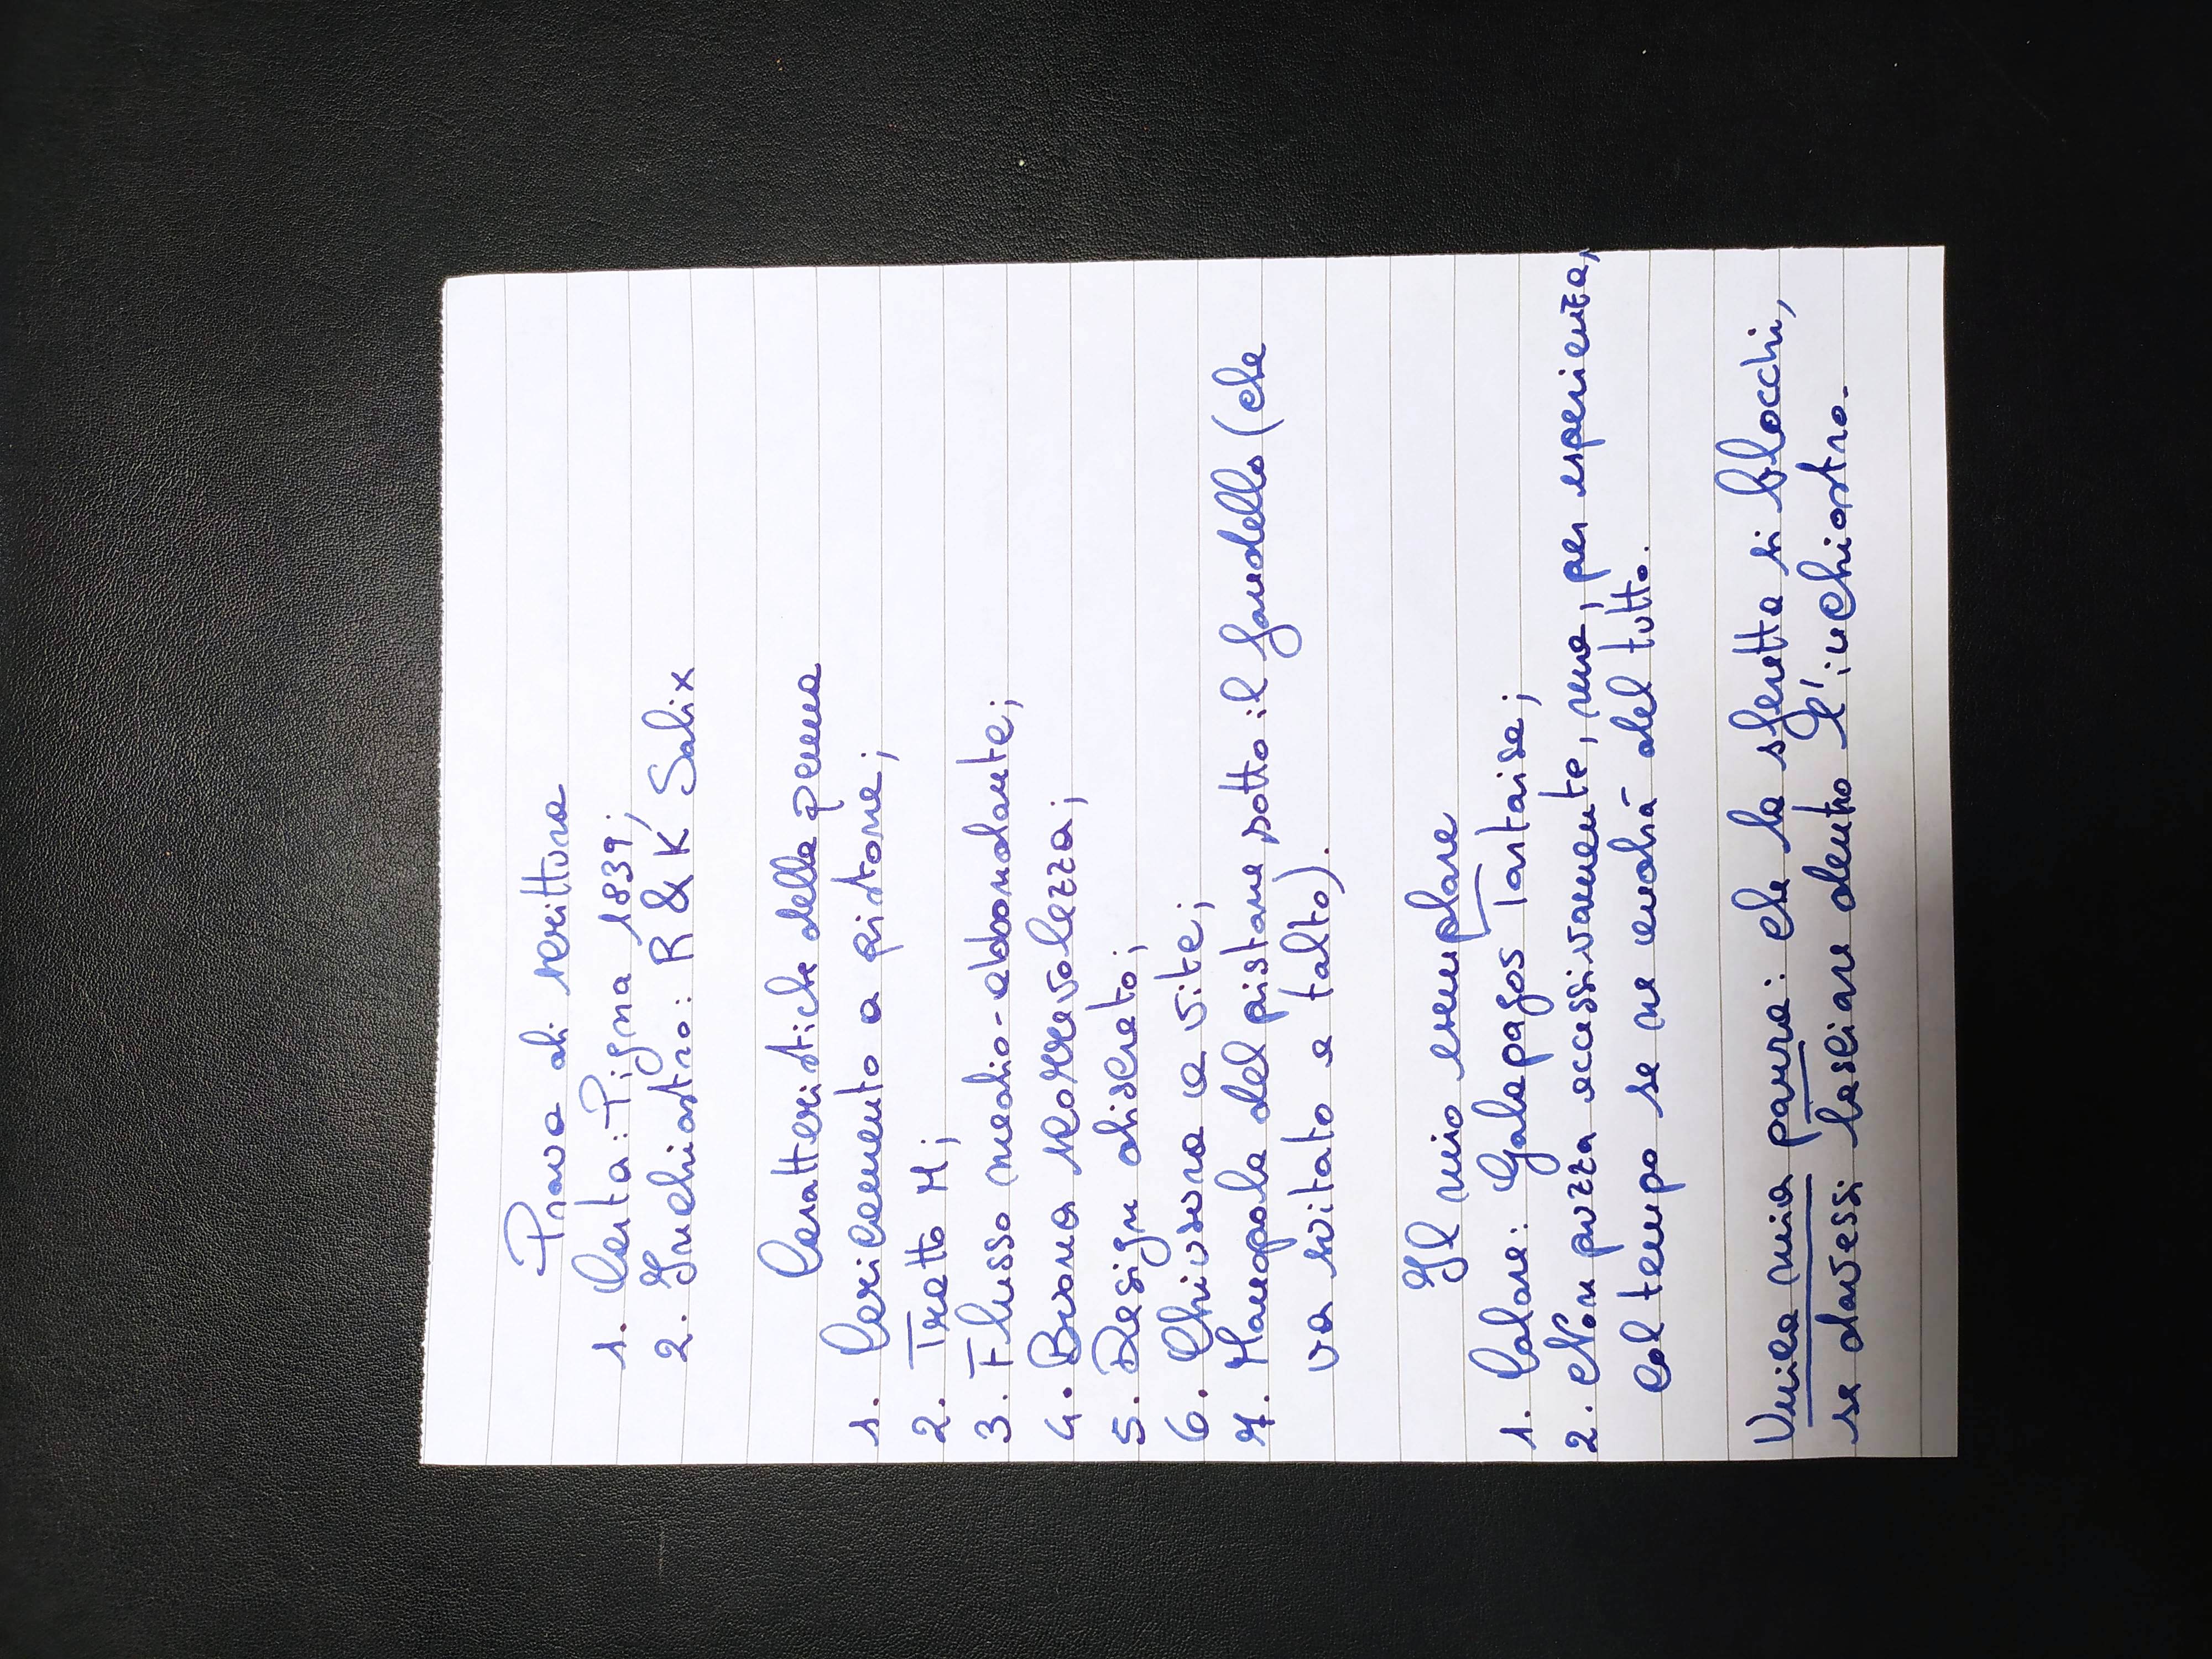 Prova di scrittura
1. Carta: Pigna 1839;
2. Inchiostro: R & K Salix
Caratteristiche della penna
1. Caricamento a pistone;
2. Tratto M;
3. Flusso medio-abbondante;
4. Buona scorrevolezza;
5. Design discreto;
6. Chiusura a vite;
7. Manopola del pistone sotto il fondello (che
va svitato e tolto).
Il mio esemplare
1. Colore: Galapagos Tortoise;
2. Non puzza eccessivamente, ma, per esperienza,
col tempo se ne andrà del tutto.
Unica mia paura: che la sferetta si blocchi,
se dovessi lasciare dentro l'inchiostro.